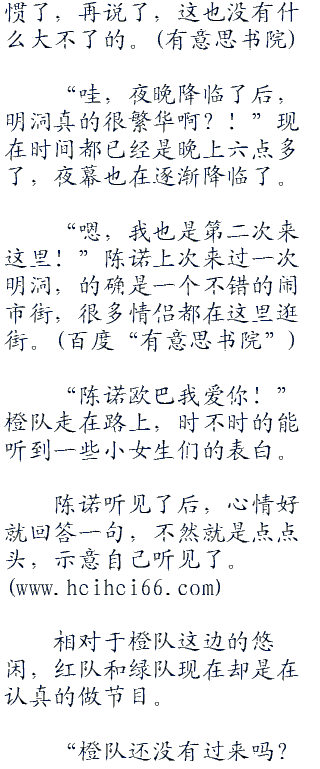 惯了，再说了，这也没有什
么大不了的。(有意思书院)
“哇，夜晚降临了后，
明洞真的很繁华啊？！”现
在时间都已经是晚上六点多
了，夜幕也在逐渐降临了。
“嗯，我也是第二次来
这里！”陈诺上次来过一次
明洞，的确是一个不错的闹
市街，很多情侣都在这里逛
街。(百度“有意思书院”)
“陈诺欧巴我爱你！”
橙队走在路上，时不时的能
听到一些小女生们的表白。
陈诺听见了后，心情好
就回答一句，不然就是点点
头，示意自己听见了。
(www.hcihci66.com)
相对于橙队这边的悠
闲，红队和绿队现在却是在
认真的做节目。
“橙队还没有过来吗？